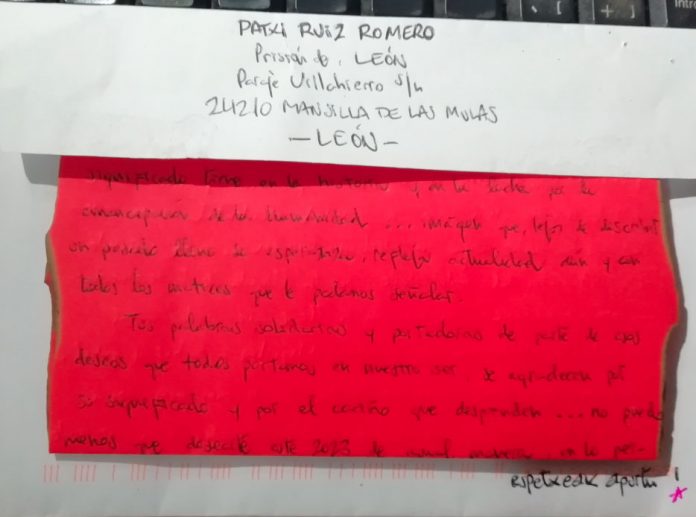 PATXI RUIZ ROMERO
Prisión de LEÓN
Paraje Villahierro s/n
24210 MANSILLA DE LAS MULAS
—LEÓN—
significado tiene en la historia y en la lucha por la
emancipación de la Humanidad ... imagen que, lejos de describir
un pasado lleno de esperanza, refleja actualidad aún y con
todos los matices que le podamos señalar.
Tus palabras solidarias y portadoras de parte de esos
deseos que todos portamos en nuestro ser se agradecen por
su significado y por el cariño que desprenden ... no puedo
menos que desearte este 2023 de igual manera en lo per-
Espetxeak apurtu!